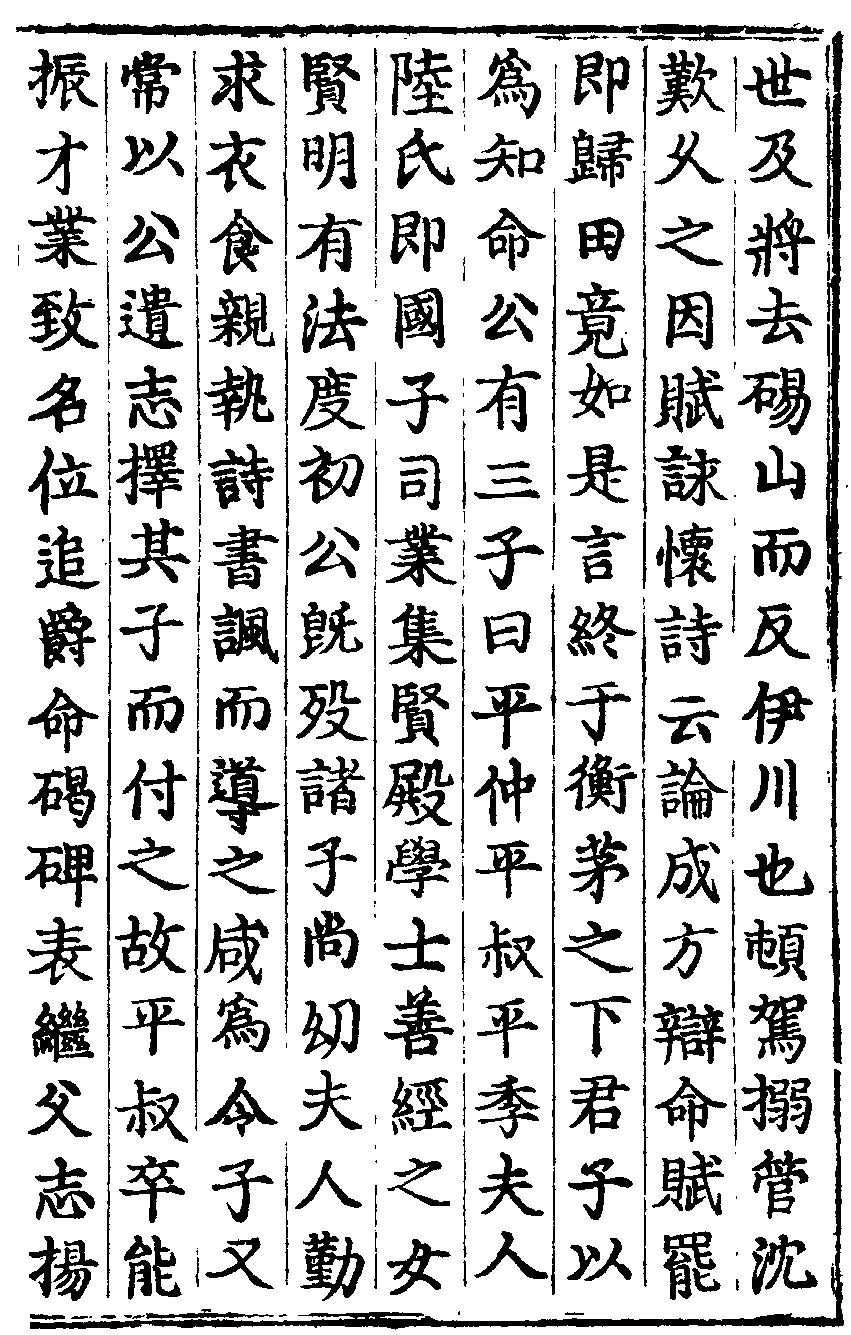 世及將去碭山而反伊川也頓駕搦管沈
歎久之因賦詠懷詩云論成方辯命賦罷
即歸田竟如是言終于衡茅之下君子以
爲知命公有三子曰平仲平叔平季夫人
陸氏即國子司業集賢殿學士善經之女
賢明有法度初公旣歿諸子尚幼夫人勤
求衣食親執詩書諷而導之咸爲令子又
常以公遺志擇其子而付之故平叔卒能
振才業致名位追爵命碣碑表繼父志揚